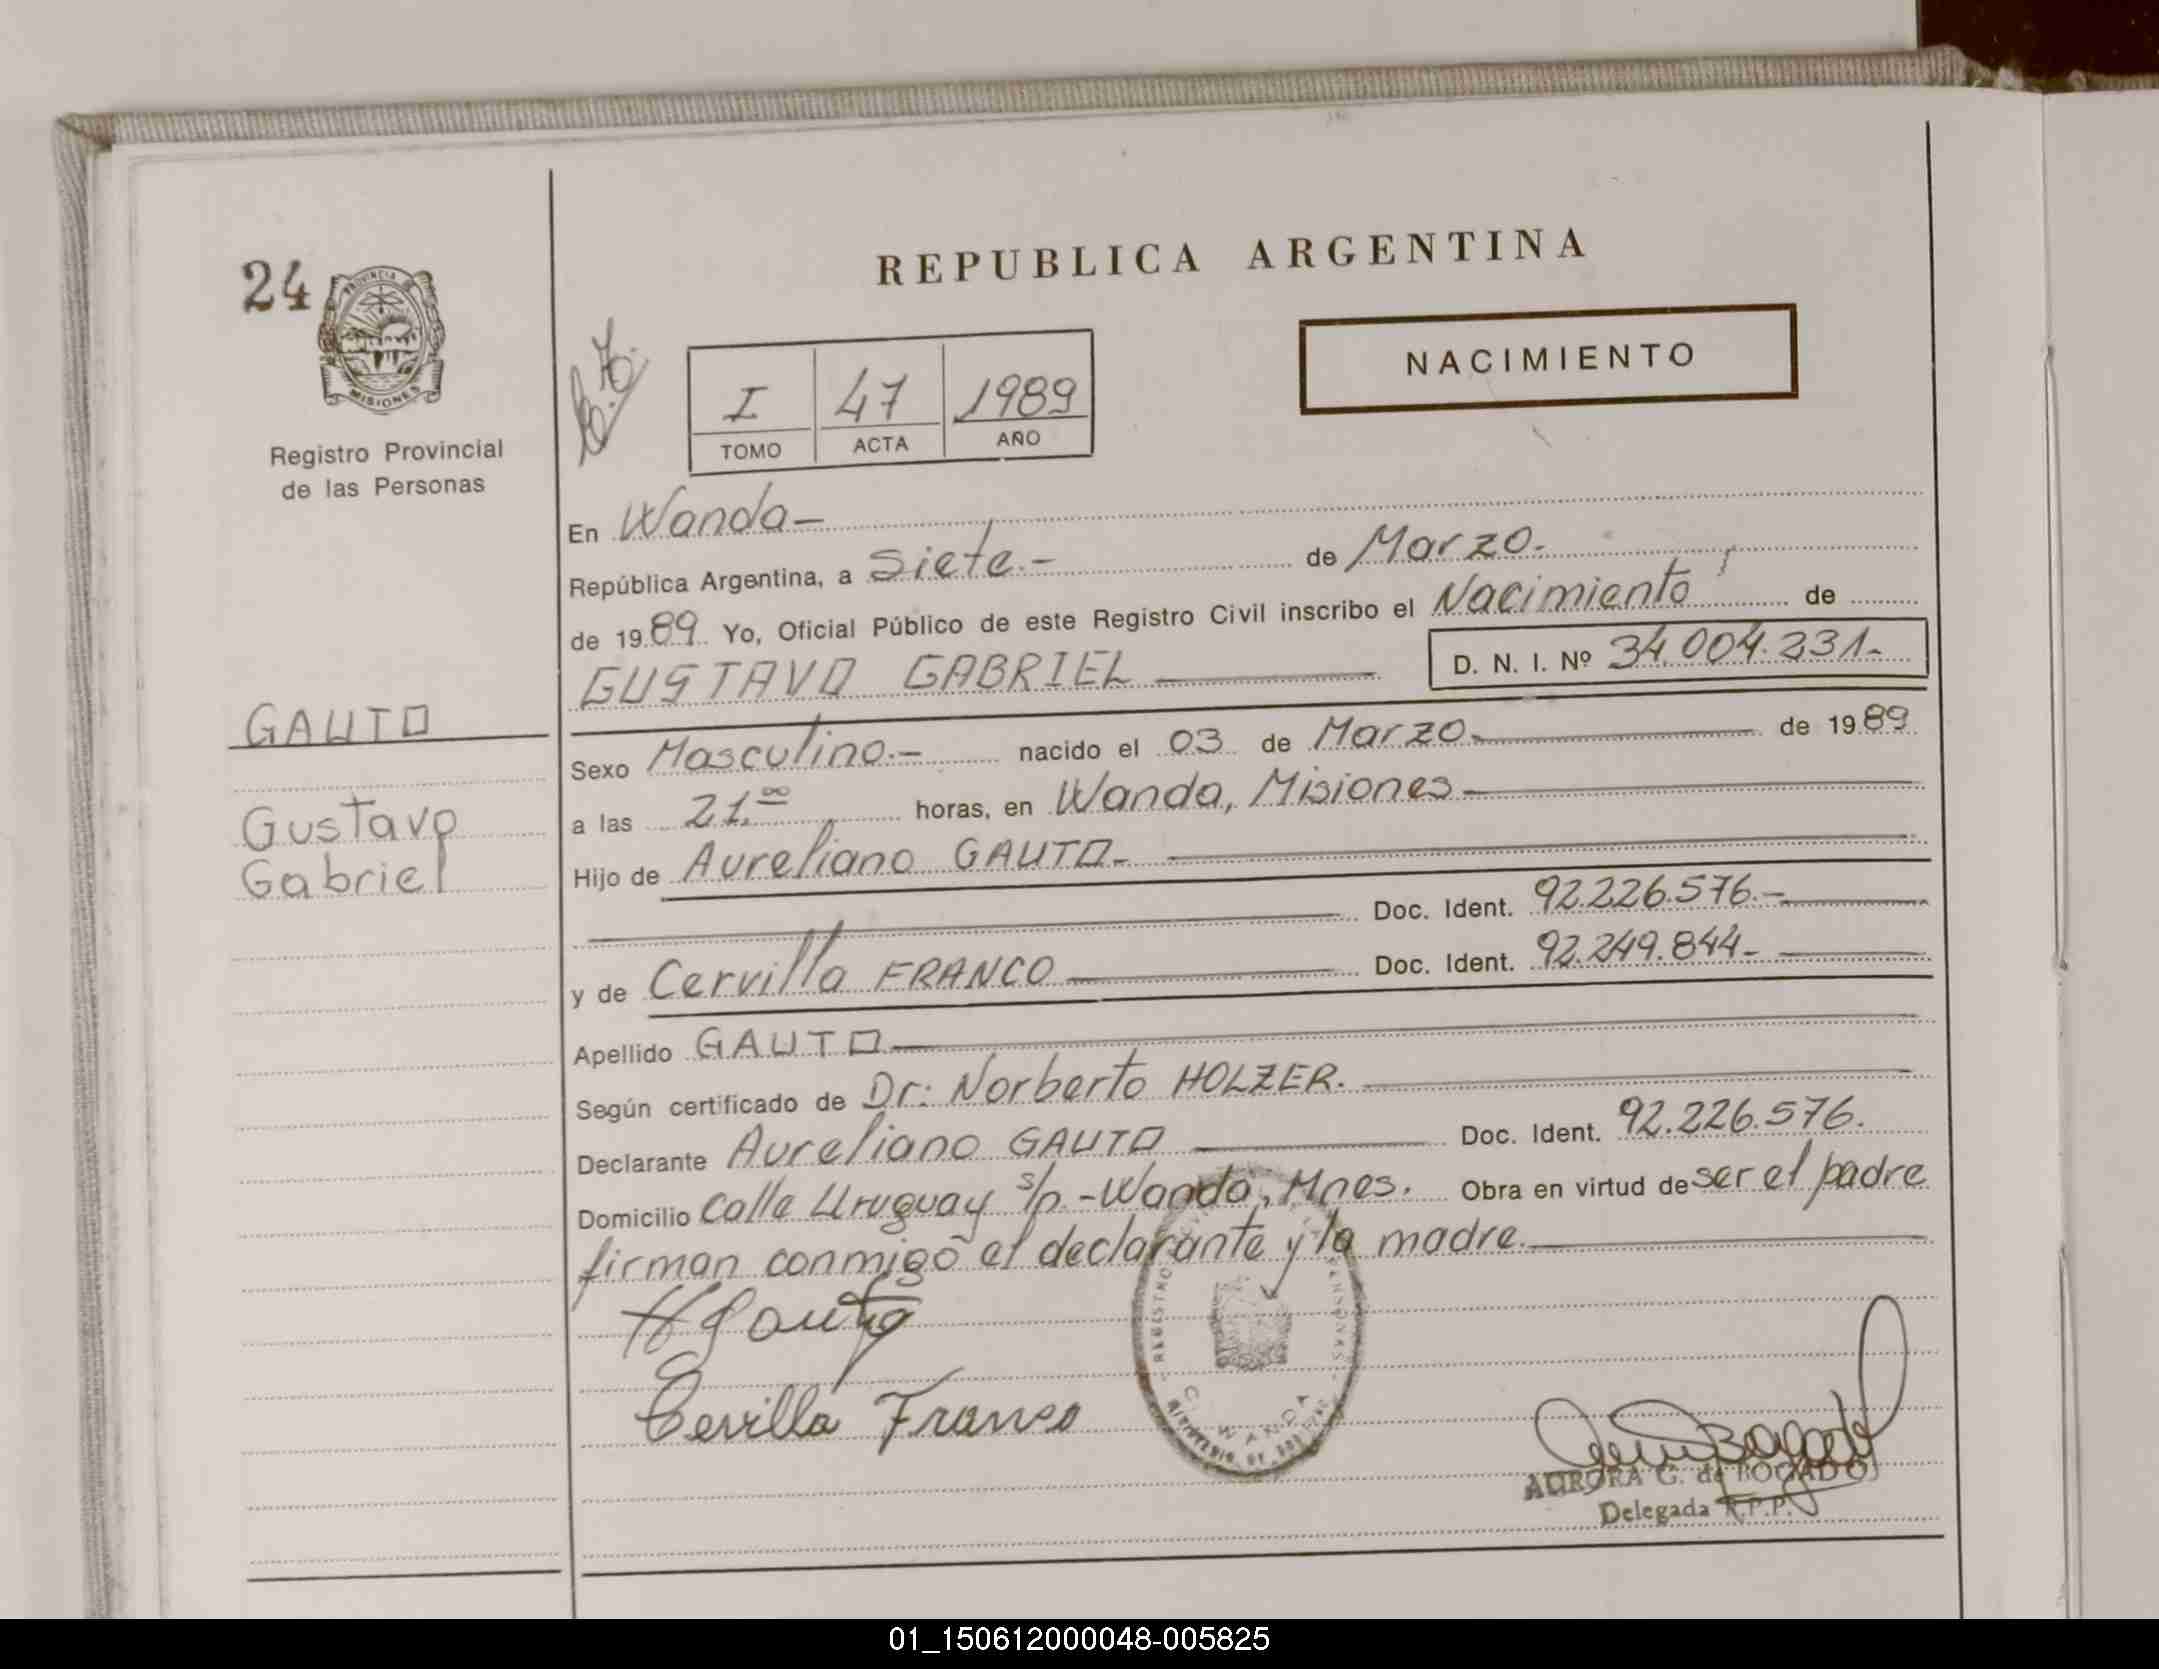 REPUBLICA ARGENTINA
24
PROVINCIA
MISIONES
Registro Provincial
de las Personas
NACIMIENTO
I 47 1989
TOMO ACTA AÑO
En Wanda-
República Argentina, a Siete.- de Marzo.-
de 1989 Yo, Oficial Público de este Registro Civil inscribo el Nacimiento de
GUSTAVO GABRIEL D. N. I. Nº 34.004.231.-
GAUTO
Gustavo
Gabriel
Sexo Masculino.- nacido el 03 de Marzo.- de 1989
a las 21.00 horas, en Wanda, Misiones
Hijo de Aureliano GAUTO.-
Doc. Ident. 92.226.576.-
y de Cervilla FRANCO Doc. Ident. 92.249.844-
Apellido GAUTO
Según certificado de Dr: Norberto HOLZER.
Declarante Aureliano GAUTO Doc. Ident. 92.226.576.
Domicilio calle Uruguay s/n.-Wanda, Mnes. Obra en virtud de ser el padre
firman conmigo el declarante y la madre.
Cervilla Franco
REGISTRO
PERSONAS
WANDA
AURORA G. de BOGADO
Delegada R.P.P.
01_150612000048-005825